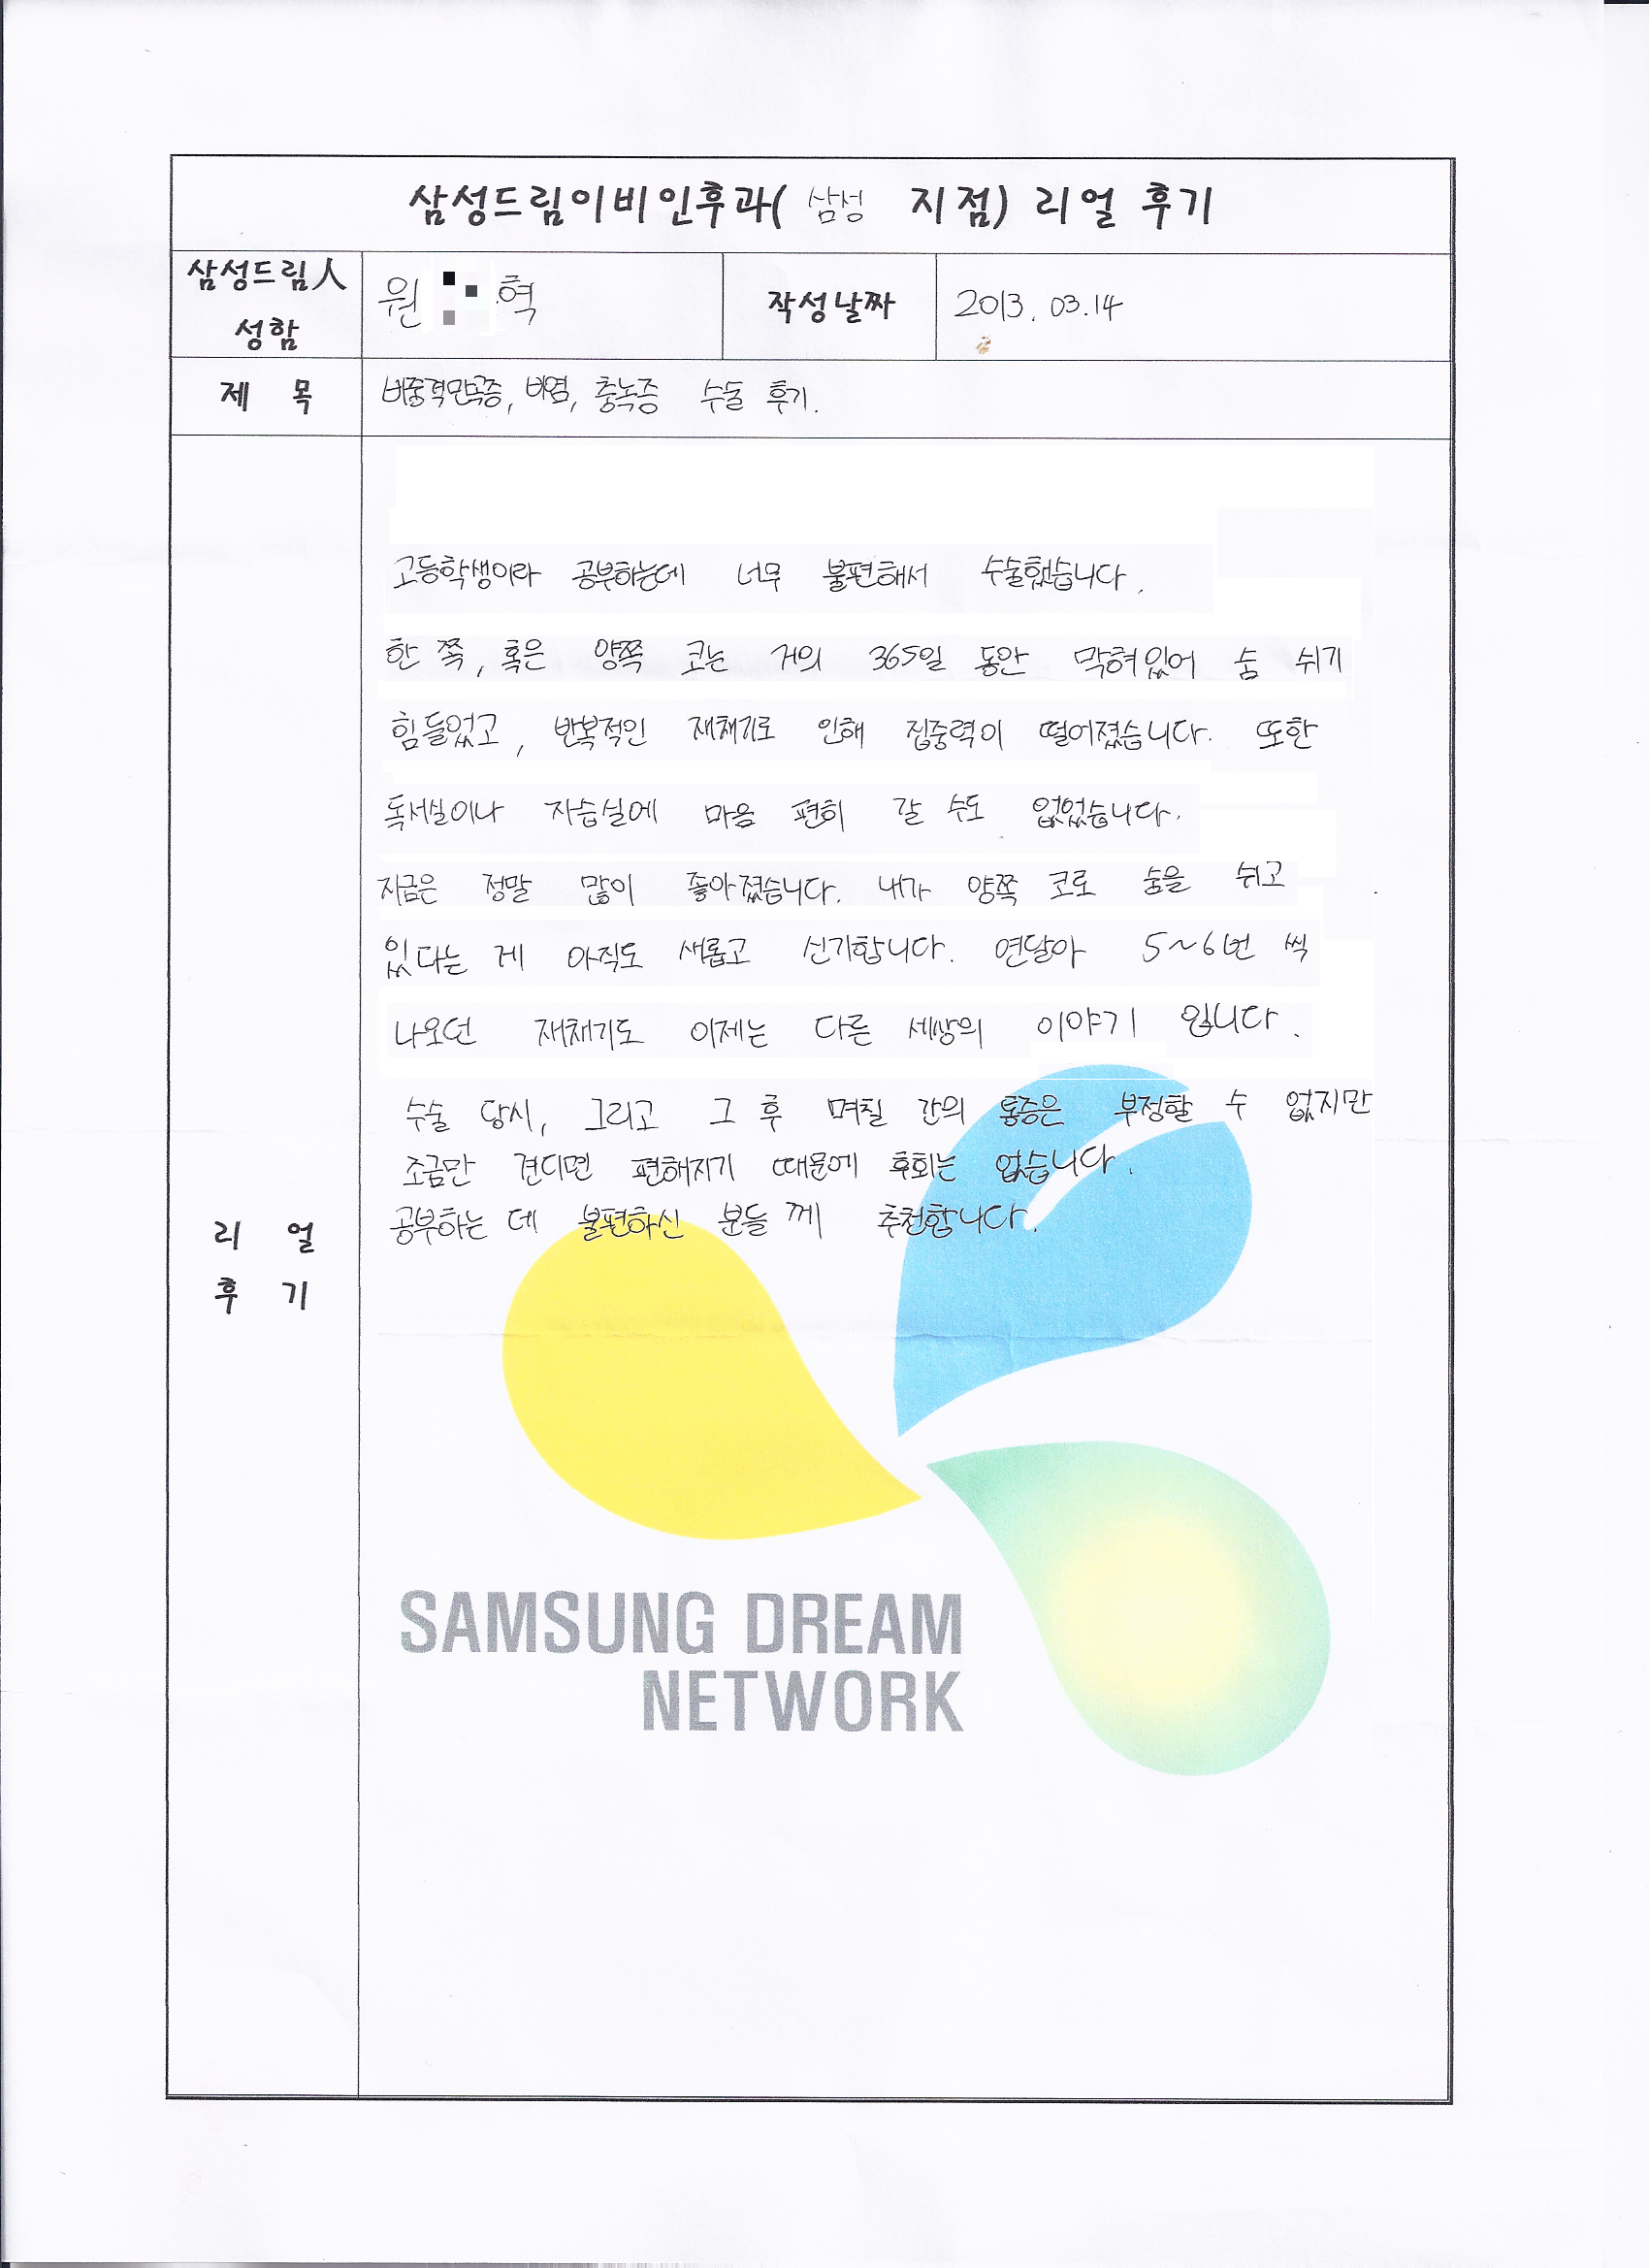 삼성드림이비인후과( 삼성 지점) 리얼 후기
삼성드림人
성함
원 혁
작성날짜
2013. 03.14
제 목
비중격만곡증, 비염, 충농증 수술 후기.
고등학생이라 공부하는데 너무 불편해서 수술했습니다.
한 쪽, 혹은 양쪽 코는 거의 365일 동안 막혀있어 숨 쉬기
힘들었고, 반복적인 재채기로 인해 집중력이 떨어졌습니다. 또한
독서실이나 자습실에 마음 편히 갈 수도 없었습니다.
지금은 정말 많이 좋아졌습니다. 내가 양쪽 코로 숨을 쉬고
있다는 게 아직도 새롭고 신기합니다. 연달아 5~6번 씩
나오던 재채기도 이제는 다른 세상의 이야기 입니다.
수술 당시, 그리고 그 후 며칠 간의 통증은 부정할 수 없지만
조금만 견디면 편해지기 때문에 후회는 없습니다.
공부하는 데 불편하신 분들 께 추천합니다.
리 얼
후 기
SAMSUNG DREAM
NETWORK